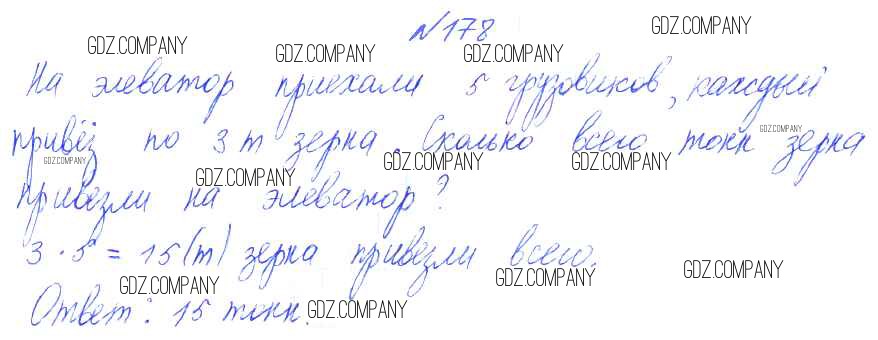 №178
На элеватор приехали 5 грузовиков, каждый
привёз по 3 т зерна. Сколько всего тонн зерна
привезли на элеватор?
3 · 5 = 15 (т) зерна привезли всего.
Ответ: 15 тонн.
GDZ.COMPANY
GDZ.COMPANY
GDZ.COMPANY
GDZ.COMPANY
GDZ.COMPANY
GDZ.COMPANY
GDZ.COMPANY
GDZ.COMPANY
GDZ.COMPANY
GDZ.COMPANY
GDZ.COMPANY
GDZ.COMPANY
GDZ.COMPANY